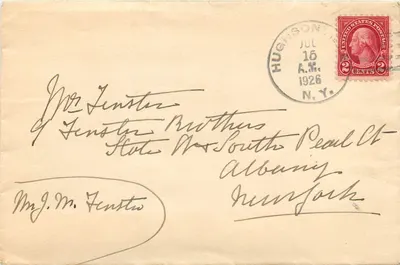 HUGHSON
JUL
15
A.M.
1926
N. Y.
UNITED STATES POSTAGE
2 CENTS 2
Mr Fenster
of Fenster Brothers
State & South Pearl Ct
Albany
New York
Mr J. M. Fenster